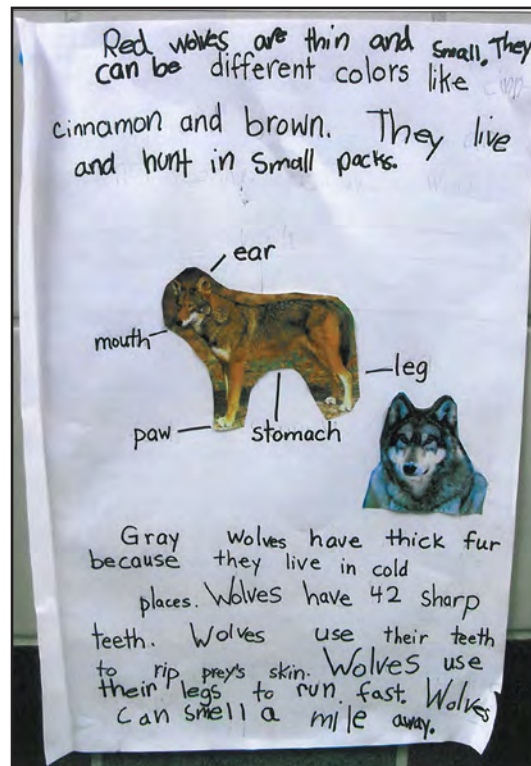 Red wolves are thin and small. They
can be different colors like
cinnamon and brown. They live
and hunt in small packs.
ear
mouth
leg
paw
stomach
Gray wolves have thick fur
because they live in cold
places. Wolves have 42 sharp
teeth. Wolves use their teeth
to rip prey's skin. Wolves use
their legs to run fast. Wolves
can smell a mile away.